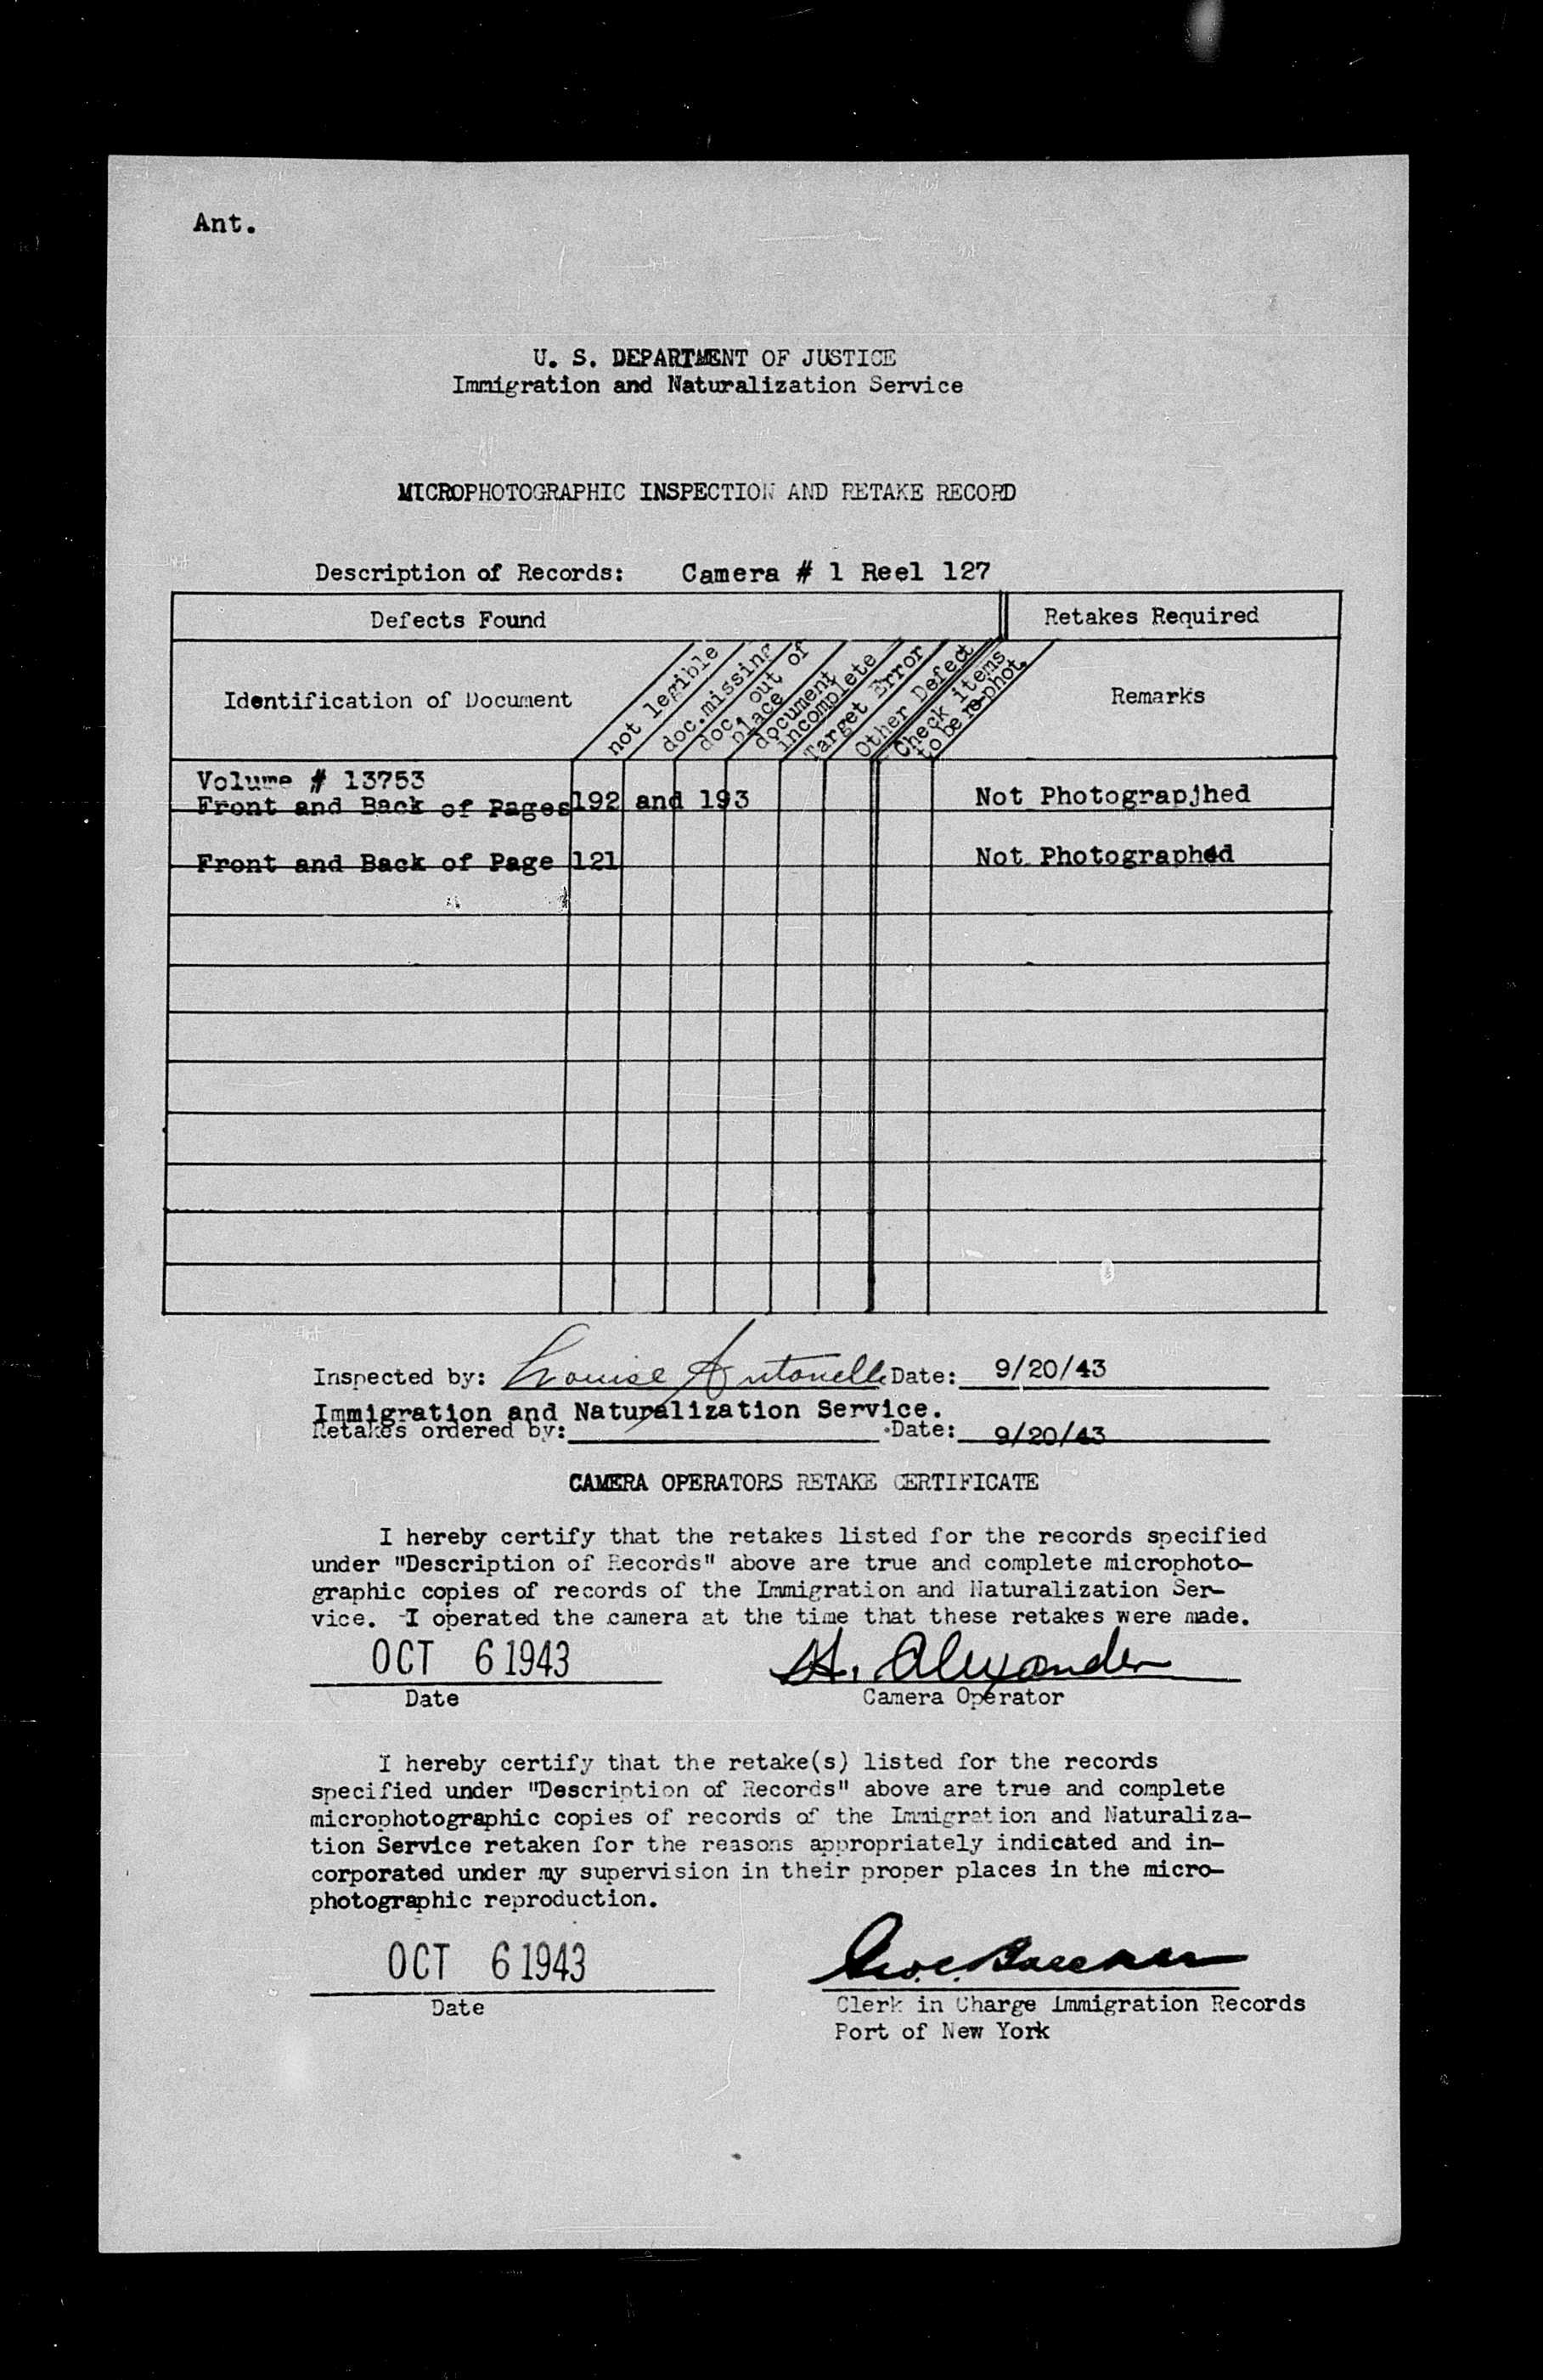 Ant.
U. S. DEPARTMENT OF JUSTICE
Immigration and Naturalization Service
MICROPHOTOGRAPHIC INSPECTION AND RETAKE RECORD
Description of Records: Camera # 1 Reel 127
Defects Found
Retakes Required
Identification of Document
not legible
doc. missing
doc. out of
place
document
incomplete
Target Error
Other Defect
Check items
to be re-phot.
Remarks
Volume # 13753
Front and Back of Pages 192 and 193 Not Photograpjhed
Front and Back of Page 121 Not Photographed
Inspected by: Louise Antonelli Date: 9/20/43
Immigration and Naturalization Service.
Retakes ordered by: Date: 9/20/43
CAMERA OPERATORS RETAKE CERTIFICATE
I hereby certify that the retakes listed for the records specified
under "Description of Records" above are true and complete microphoto-
graphic copies of records of the Immigration and Naturalization Ser-
vice. I operated the camera at the time that these retakes were made.
OCT 6 1943 H. Alexander
Date Camera Operator
I hereby certify that the retake(s) listed for the records
specified under "Description of Records" above are true and complete
microphotographic copies of records of the Immigration and Naturaliza-
tion Service retaken for the reasons appropriately indicated and in-
corporated under my supervision in their proper places in the micro-
photographic reproduction.
OCT 6 1943
Date
Clerk in Charge Immigration Records
Port of New York